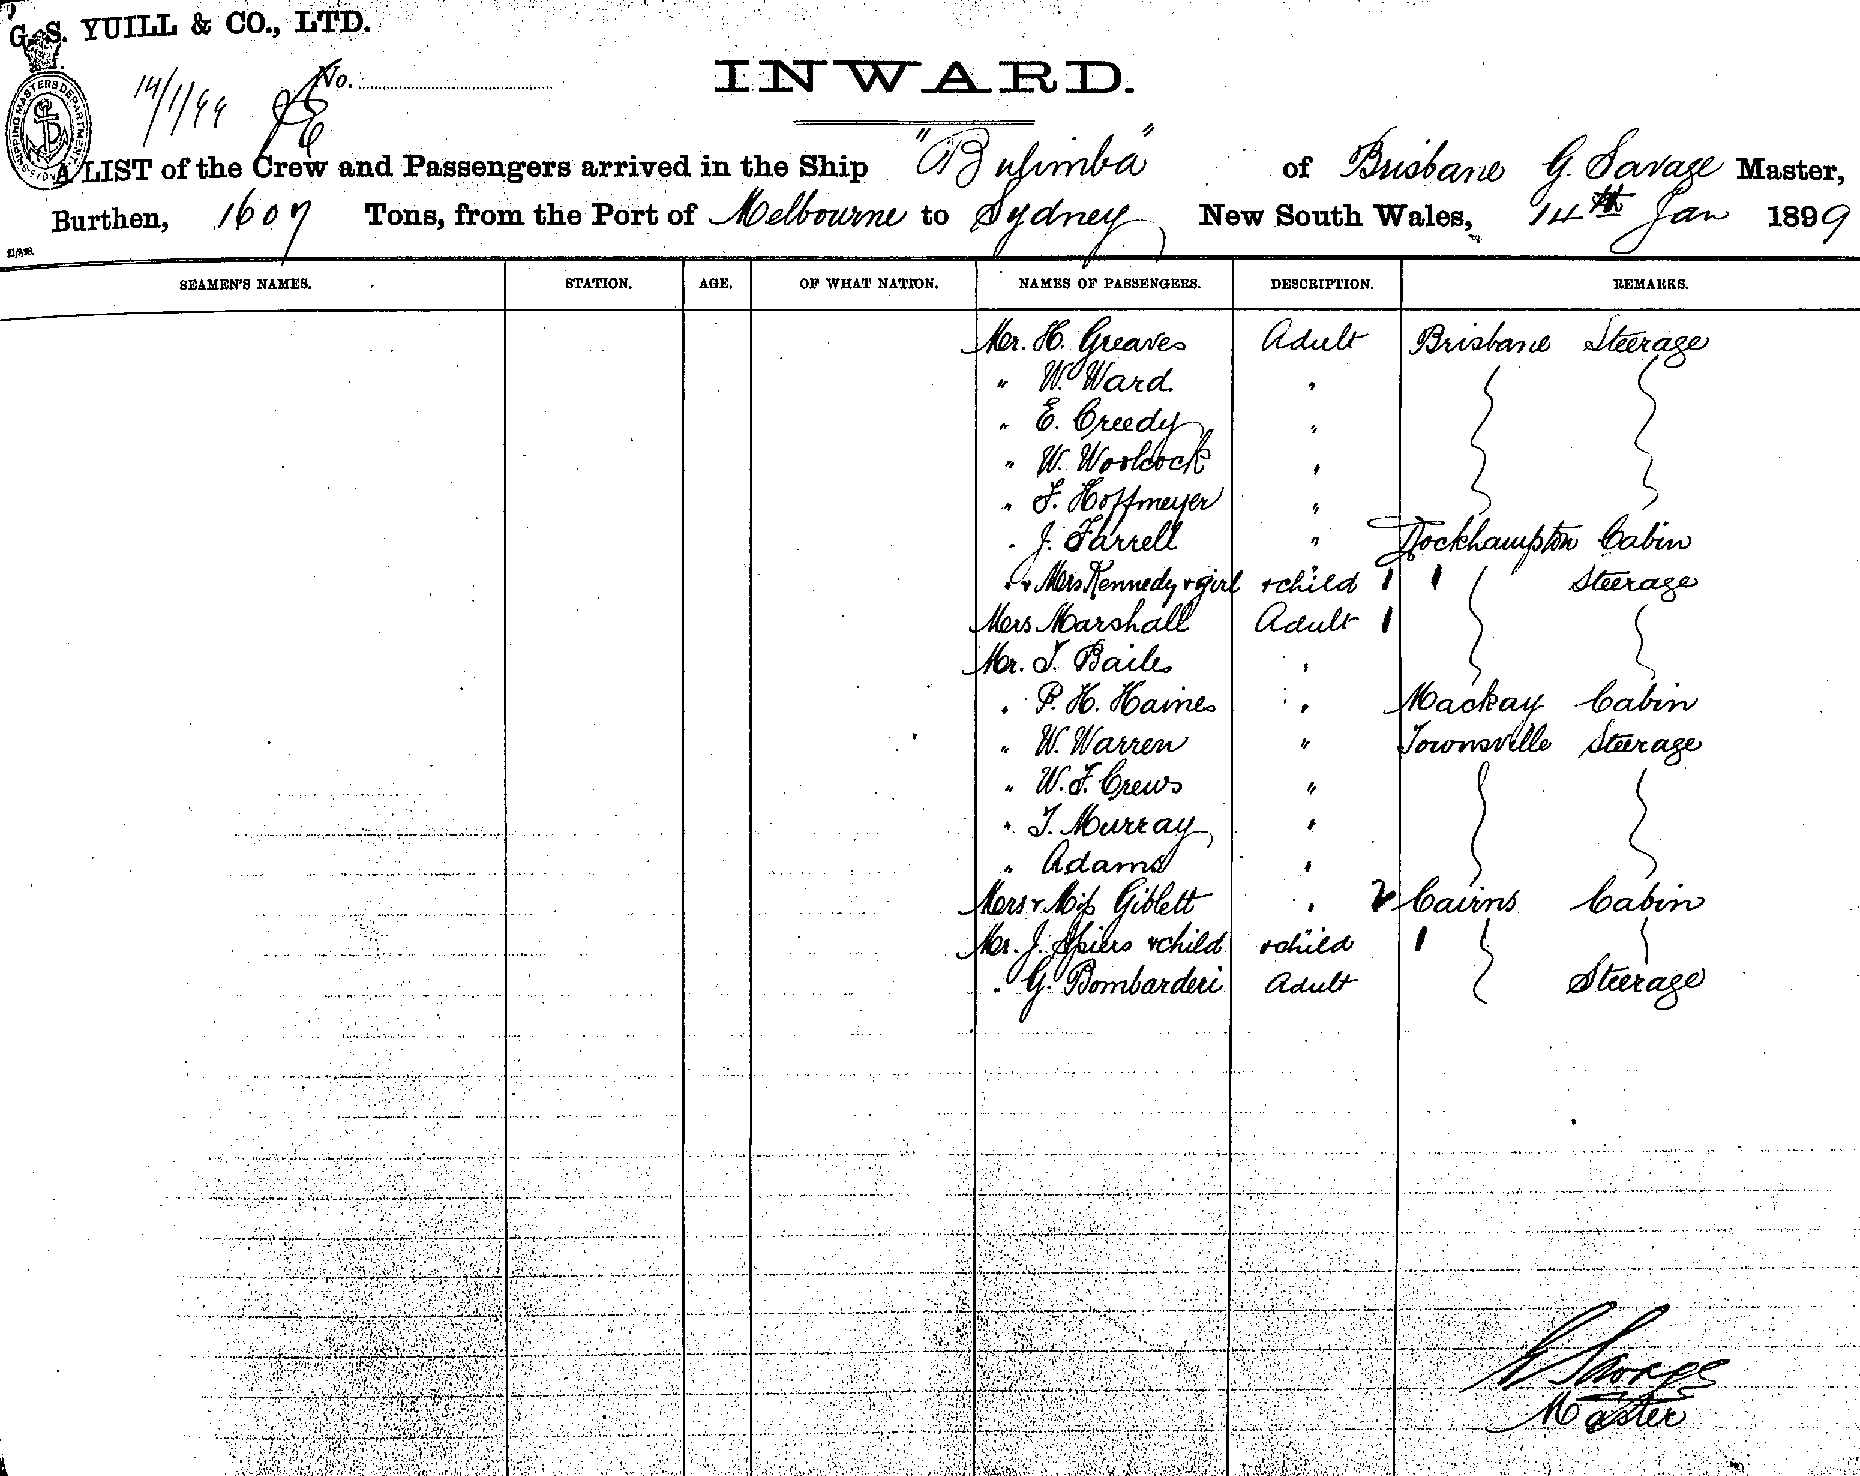 G. S. YUILL & CO., LTD.
14/1/99 No.
INWARD.
SHIPPING MASTERS DEPARTMENT
A LIST of the Crew and Passengers arrived in the Ship "Bulimba" of Brisbane G. Savage Master,
Burthen, 1607 Tons, from the Port of Melbourne to Sydney New South Wales, 14th Jan 1899
SEAMEN'S NAMES. STATION. AGE. OF WHAT NATION. NAMES OF PASSENGERS. DESCRIPTION. REMARKS.
Mr. H. Greaves Adult Brisbane Steerage
" W. Ward "
" E. Creedy "
" W. Woolcock "
" F. Hoffmeyer "
" J. Farrell " Rockhampton Cabin
" & Mrs Kennedy & girl & child 1 1 Steerage
Mrs Marshall Adult 1
Mr. T. Bailes "
" P. H. Haines " Mackay Cabin
" W. Warren " Townsville Steerage
" W. F. Crews "
" T. Murray "
" Adams "
Mrs & Miss Giblett " 2 Cairns Cabin
Mr. J. Spiers & child & child 1
" G. Bombarderi Adult Steerage
Master